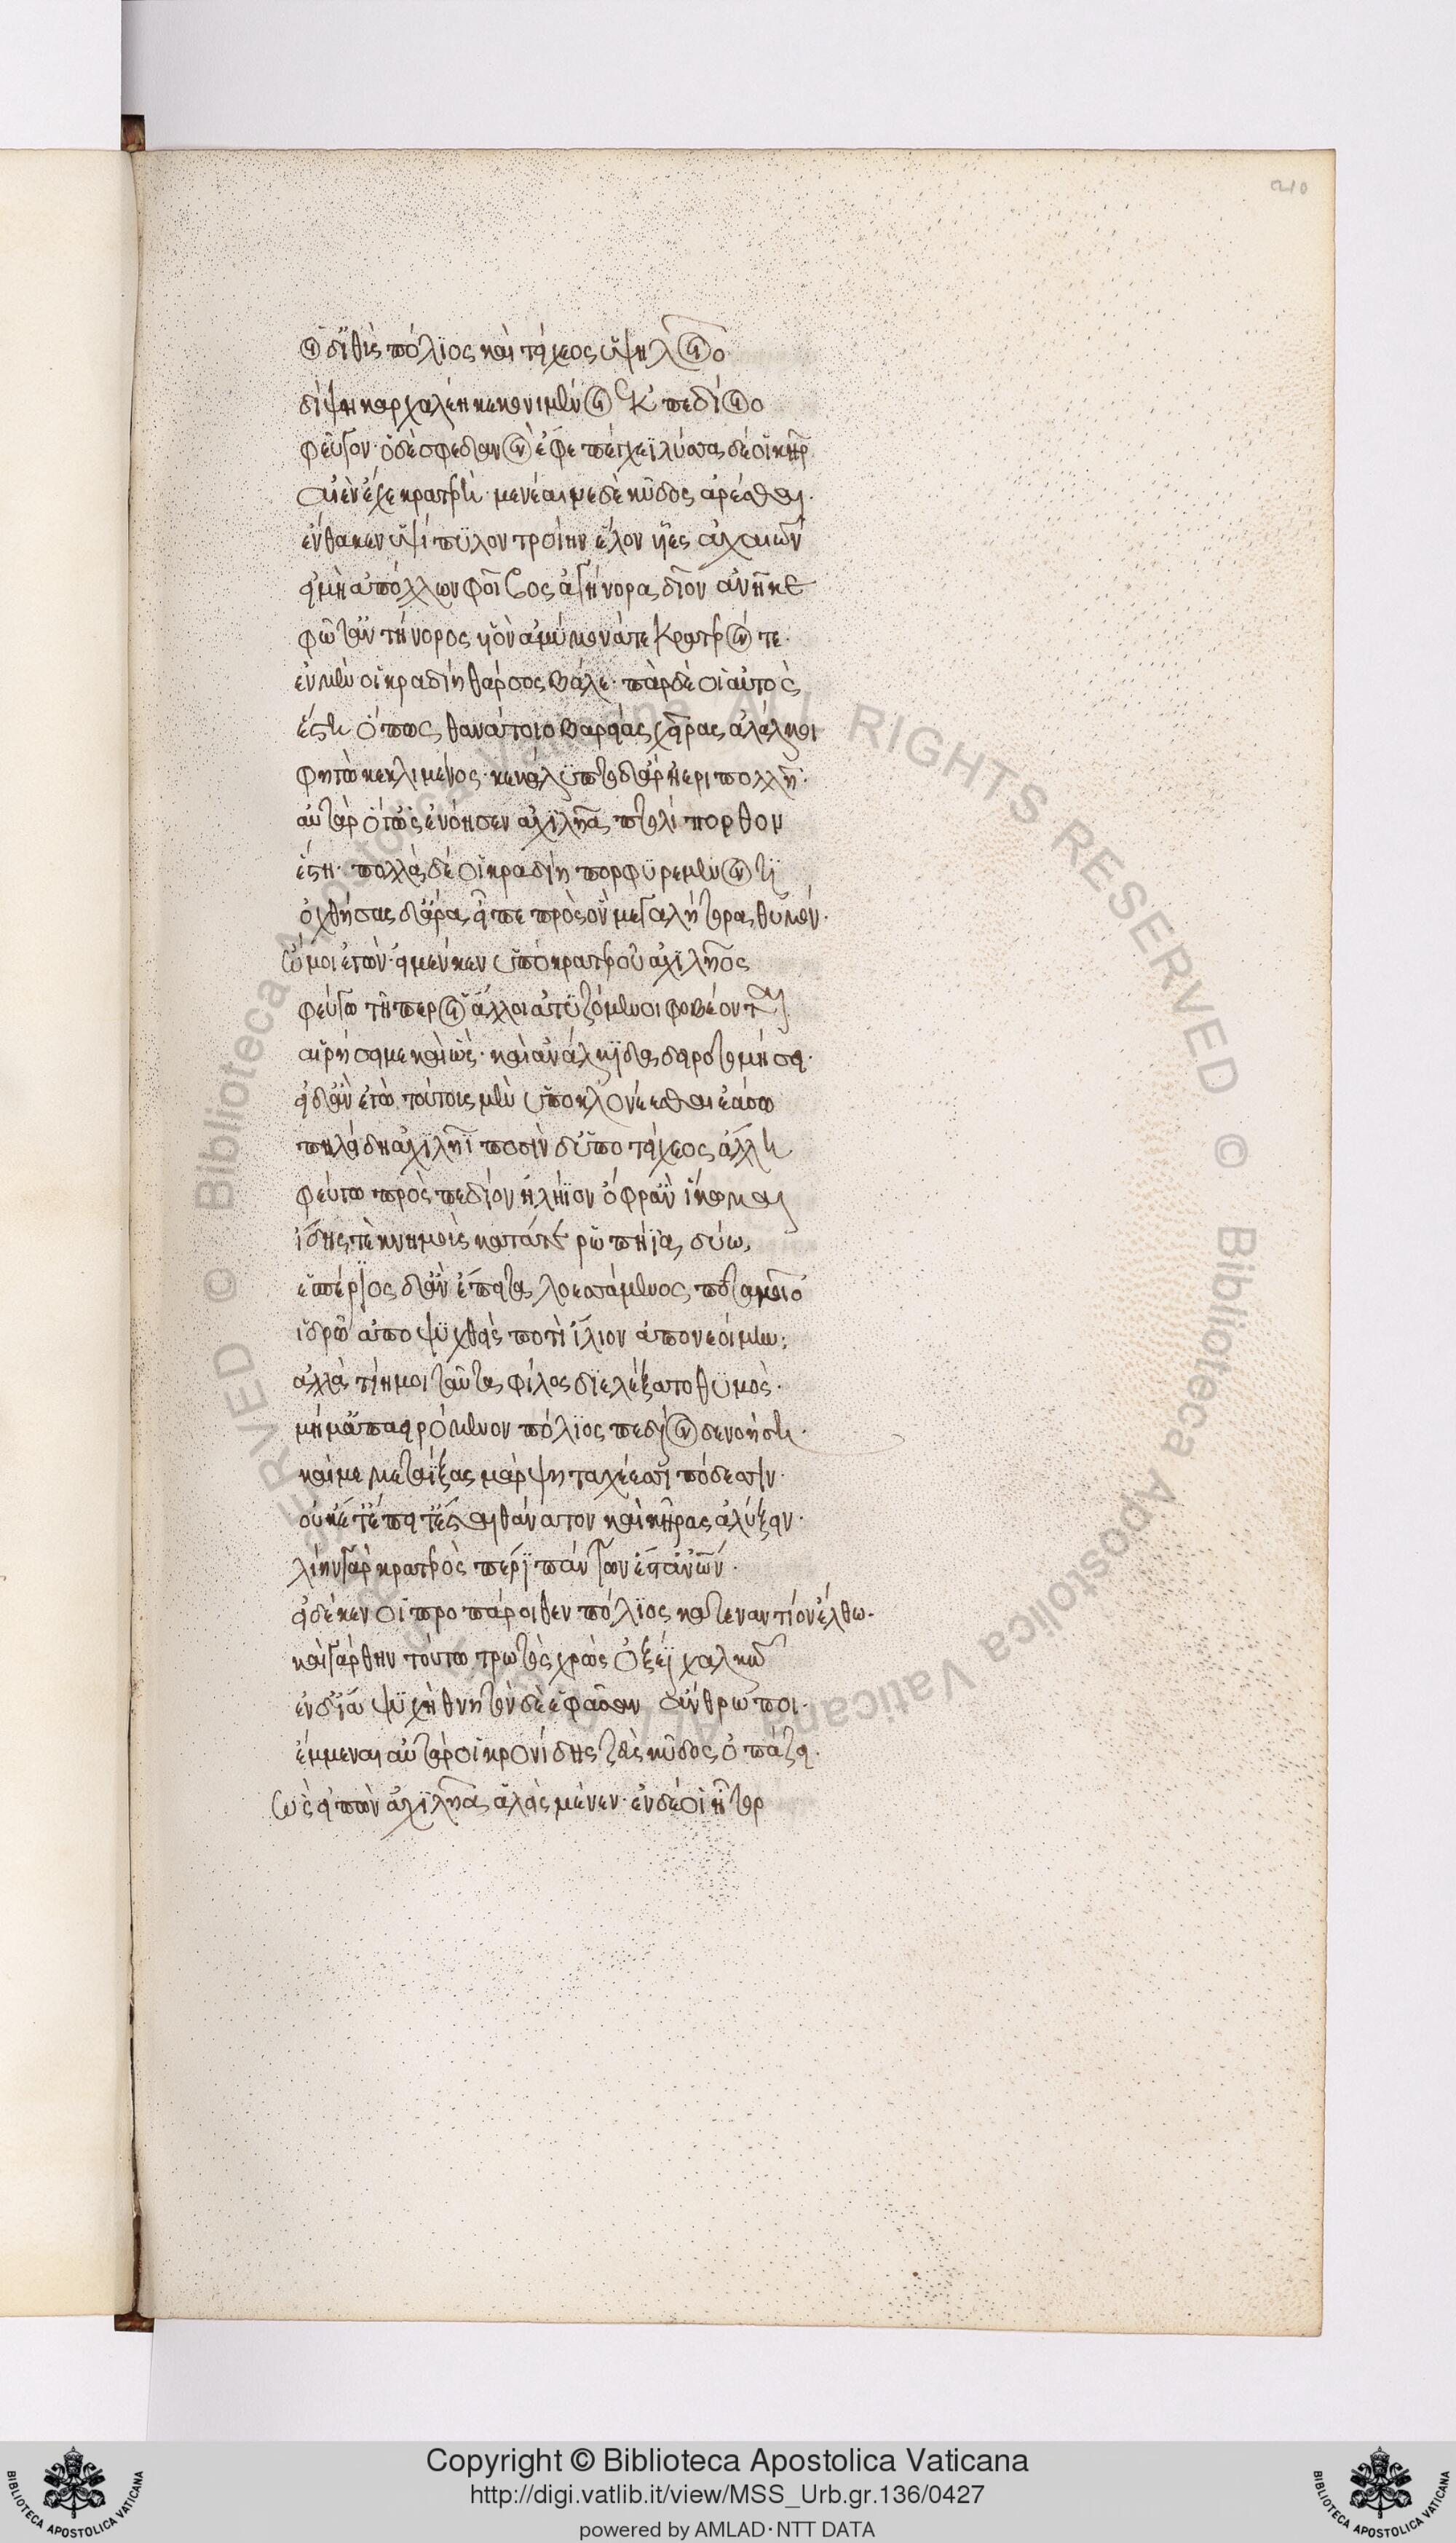 210
οἱ δ' ἰθὺς πόλιος καὶ τείχεος ὑψηλοῖο
δίψη καρχαλέη κεκονιμένοι ἐκ πεδίοιο
φεῦγον· ὁ δὲ σφεδανὸν ἔφεπ' ἔγχεϊ λύσσα δέ οἱ κῆρ
αἰὲν ἔχε κρατερή· μενέαινε δὲ κῦδος ἀρέσθαι.
ἔνθα κεν ὑψίπυλον τροίην ἕλον υἷες ἀχαιῶν
εἰ μὴ ἀπόλλων φοῖβος ἀγήνορα δῖον ἀνῆκε
φῶτ' ἀντήνορος υἱὸν ἀμύμονά τε κρατερόν τε·
ἐν μέν οἱ κραδίη θάρσος βάλε· πὰρ δέ οἱ αὐτὸς
ἔστη ὅπως θανάτοιο βαρείας χεῖρας ἀλάλκοι
φηγῷ κεκλιμένος· κεκάλυπτο δ' ἄρ' ἠέρι πολλῇ·
αὐτὰρ ὅγ' ὡς ἐνόησεν ἀχιλῆα πτολίπορθον
ἔστη· πολλὰ δέ οἱ κραδίη πόρφυρε μένοντι
ὀχθήσας δ' ἄρα εἶπε πρὸς ὃν μεγαλήτορα θυμόν·
ὤμοι ἐγών· εἰ μέν κεν ὑπὸ κρατεροῦ ἀχιλῆος
φεύγω τῇ περ οἱ ἄλλοι ἀτυζόμενοι φοβέονται
αἱρήσει με καὶ ὧς· καὶ ἀνάλκιδα δειροτομήσει·
εἰ δ' ἂν ἐγὼ τούτοις μὲν ὑποκλονέεσθαι ἐάσω
πηλείδῃ ἀχιλῆϊ ποσὶν δ' ὑπὸ τείχεος ἄλλῃ
φεύγω πρὸς πεδίον ἰλήϊον ὄφρ' ἂν ἵκωμαι
ἴδης τε κνημοὺς κατά τε ῥωπήϊα δύω,
ἑσπέριος δ' ἂν ἔπειτα λοεσσάμενος ποταμοῖο
ἱδρῶ ἀποψυχθεὶς ποτὶ ἴλιον ἀπονεοίμην·
ἀλλὰ τίη μοι ταῦτα φίλος διελέξατο θυμός·
μή μ' ἀπαειρόμενον πόλιος πεδίον δὲ νοήσῃ·
καί με μεταΐξας μάρψῃ ταχέεσσι πόδεσσιν·
οὐκέτ' ἔπειτ' ἔσται θάνατον καὶ κῆρας ἀλύξαι·
λίην γὰρ κρατερὸς περὶ πάντων ἔστ' ἀνθρώπων·
εἰ δέ κέν οἱ προπάροιθεν πόλιος κατεναντίον ἔλθω·
καὶ γάρ θην τούτῳ τρωτὸς χρὼς ὀξέϊ χαλκῷ
ἐν δ' ἴα ψυχὴ θνητὸν δέ ἑ φάσ' ἄνθρωποι·
ἔμμεναι αὐτάρ οἱ κρονίδης ζεὺς κῦδος ὀπάζει·
ὣς εἰπὼν ἀχιλῆα ἀλεὶς μένεν· ἐν δέ οἱ ἦτορ
Copyright © Biblioteca Apostolica Vaticana
http://digi.vatlib.it/view/MSS_Urb.gr.136/0427
powered by AMLAD·NTT DATA